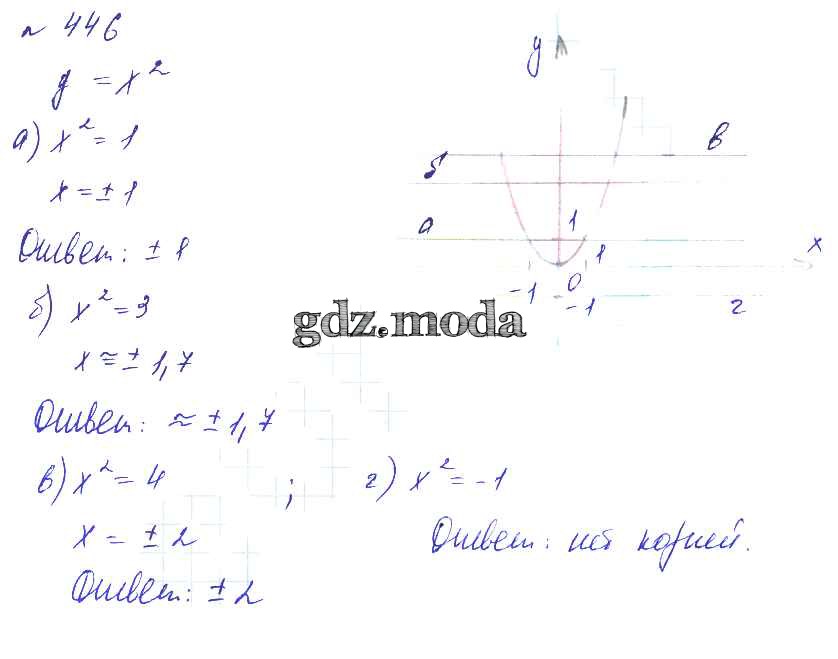 № 446
y = x²
а) x² = 1
x = ± 1
Ответ: ± 1
б) x² = 3
x ≈ ± 1,7
Ответ: ≈ ± 1,7
в) x² = 4
x = ± 2
Ответ: ± 2
;
г) x² = -1
Ответ: нет корней.
y
в
б
а
1
x
-1
0
1
-1
г
gdz.moda